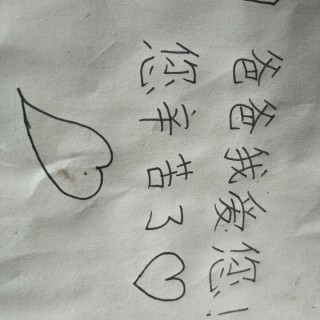 爸爸我爱您!
您辛苦了♡